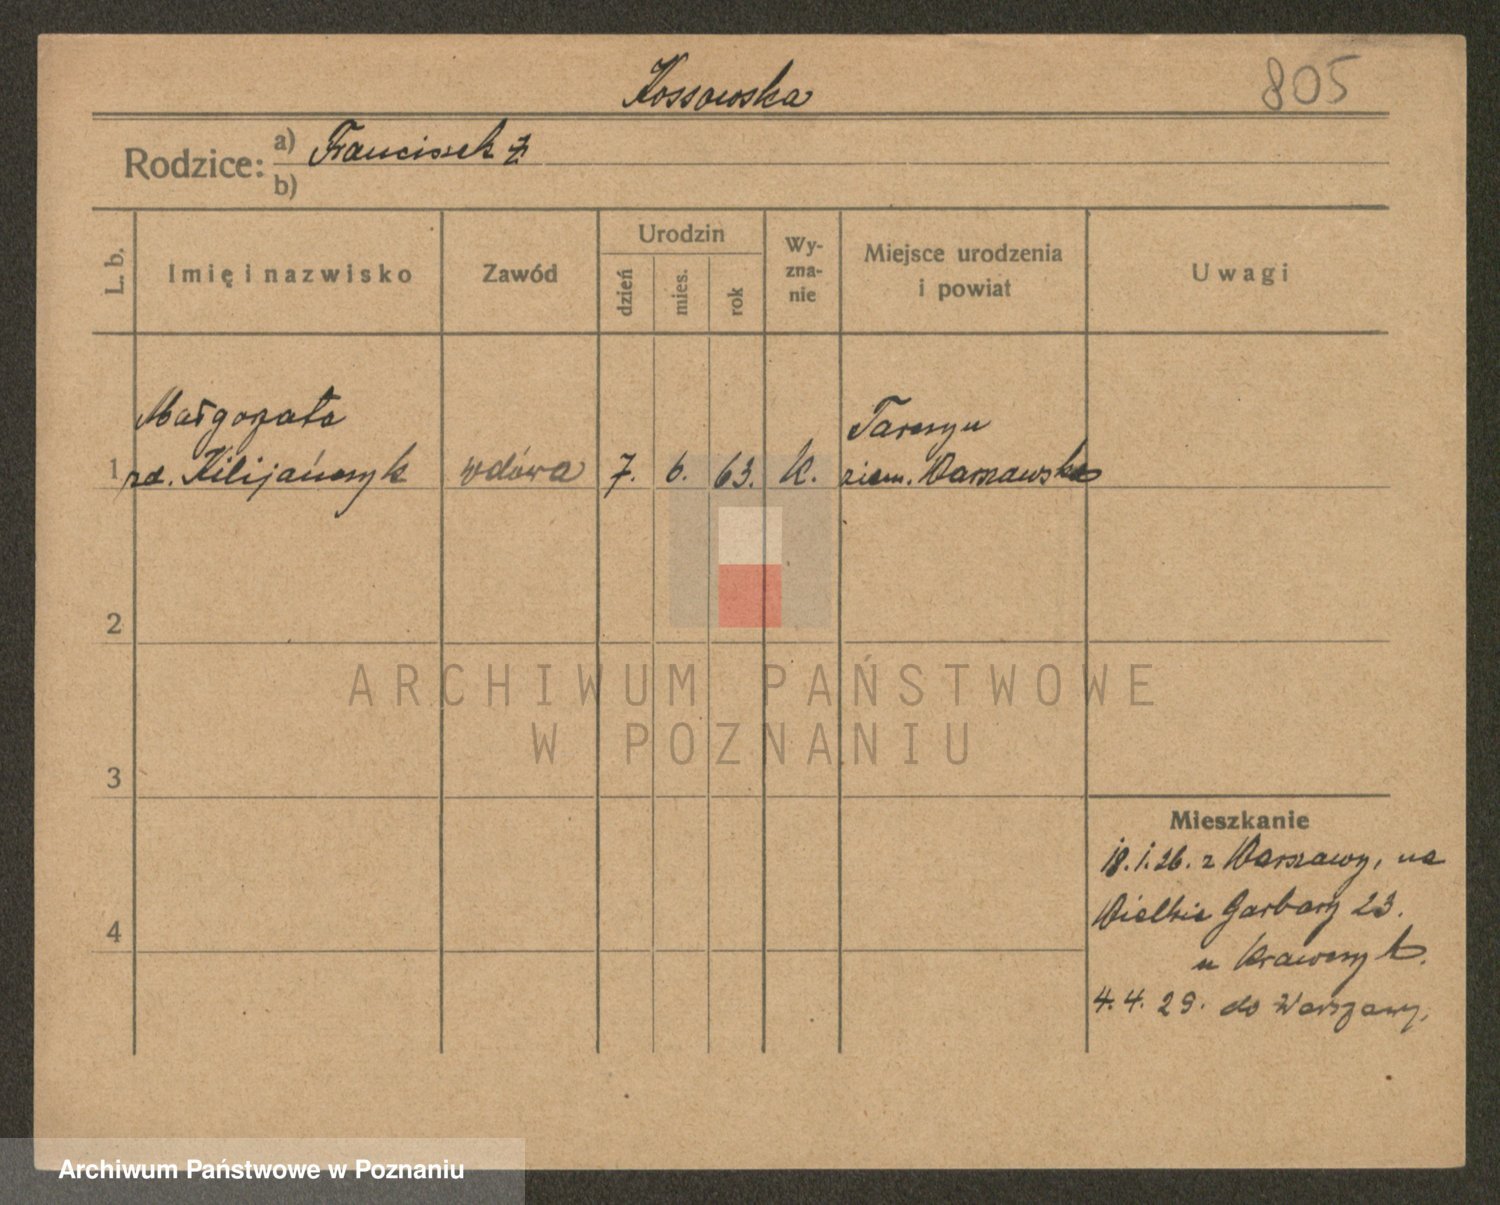 Kossowska
805
Rodzice: a) Franciszek ż
b)
L. b.
Imię i nazwisko
Zawód
Urodzin
dzień
mies.
rok
Wy-
zna-
nie
Miejsce urodzenia
i powiat
Uwagi
Małgorzata
zd. Kilijańczyk
1
wdowa
7.
6.
63.
K.
Tarczyn
ziem. Warszawska
2
3
4
ARCHIWUM PAŃSTWOWE
W POZNANIU
Mieszkanie
18.1.26. z Warszawy, na
Wielkie Garbary 23.
u Krawczyk.
4.4.29. do Warszawy.
Archiwum Państwowe w Poznaniu